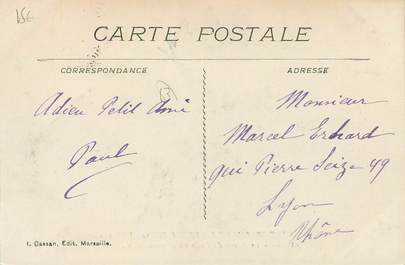 156
CARTE POSTALE
CORRESPONDANCE
ADRESSE
Adieu Petit Ami
Paul
Monsieur
Marcel Erhard
qui Pierre Seize 49
Lyon
Rhône
I. Cassan, Édit. Marseille.